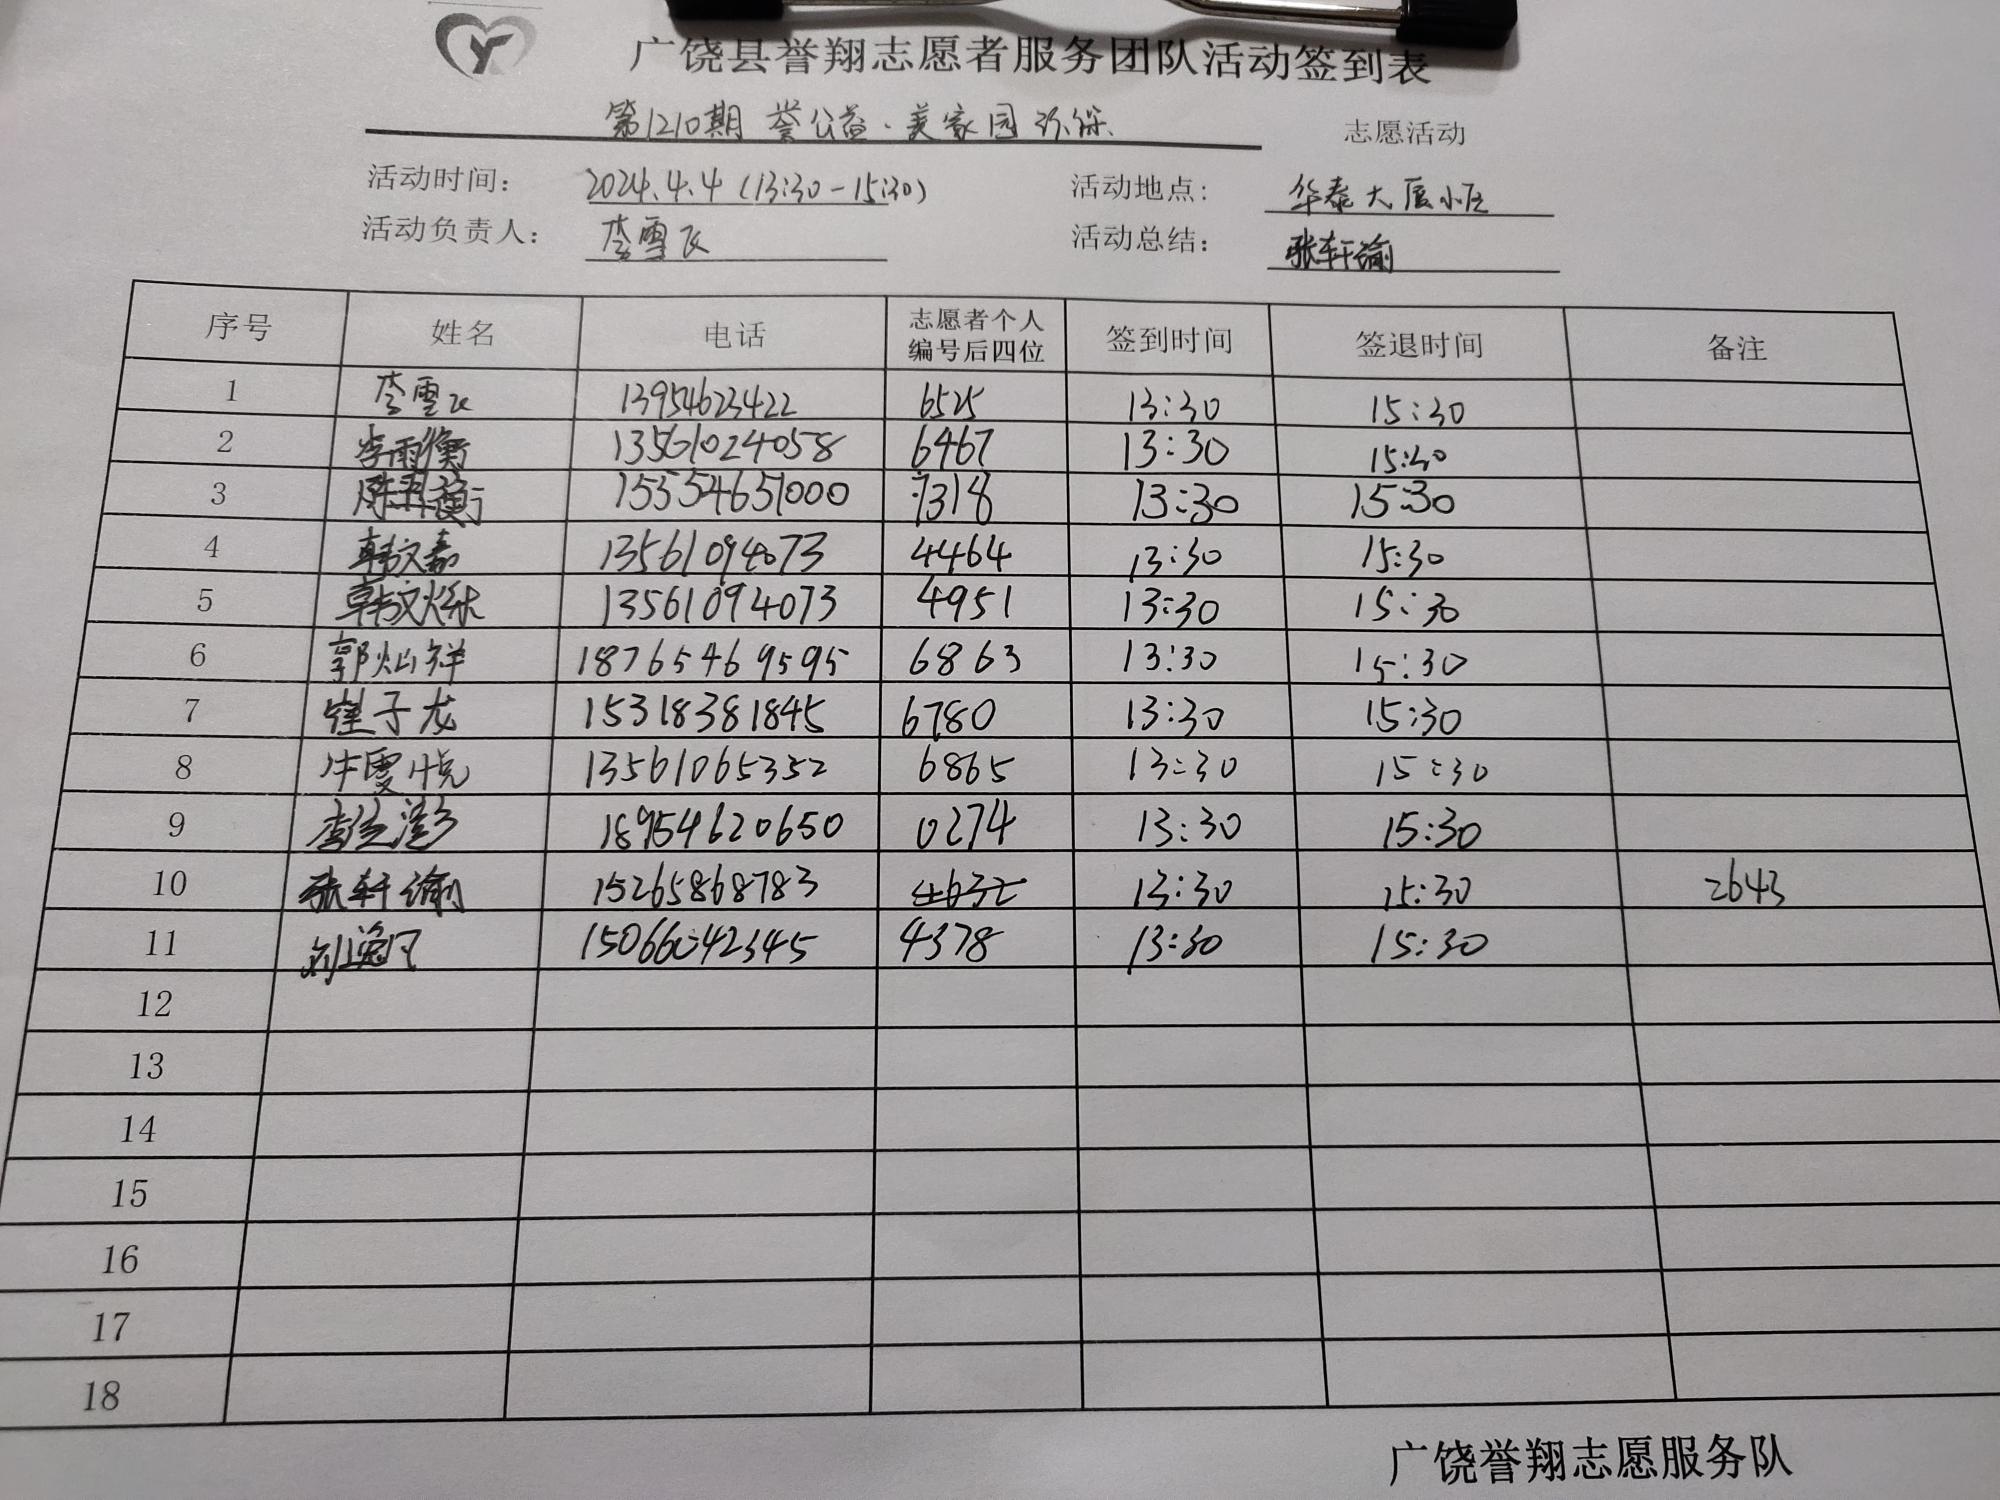 广饶县誉翔志愿者服务团队活动签到表
第1210期 誉公益·美家园环保 志愿活动
活动时间： 2024.4.4（13:30-15:30） 活动地点： 华泰大厦小区
活动负责人： 李雪飞 活动总结： 张轩瑜
序号 姓名 电话 志愿者个人编号后四位 签到时间 签退时间 备注
1 李雪飞 13954623422 6525 13:30 15:30
2 李雨衡 13561024058 6467 13:30 15:30
3 15354651000 7318 13:30 15:30
4 韩文嘉 13561094073 4464 13:30 15:30
5 韩文 13561094073 4951 13:30 15:30
6 郭灿祥 18765469595 6863 13:30 15:30
7 崔子龙 15318381845 6780 13:30 15:30
8 牛雯悦 13561065352 6865 13:30 15:30
9 李 18954620650 0274 13:30 15:30
10 张轩瑜 15265868783 4632 13:30 15:30 2643
11 刘逸飞 15066042345 4378 13:30 15:30
12
13
14
15
16
17
18
广饶誉翔志愿服务队